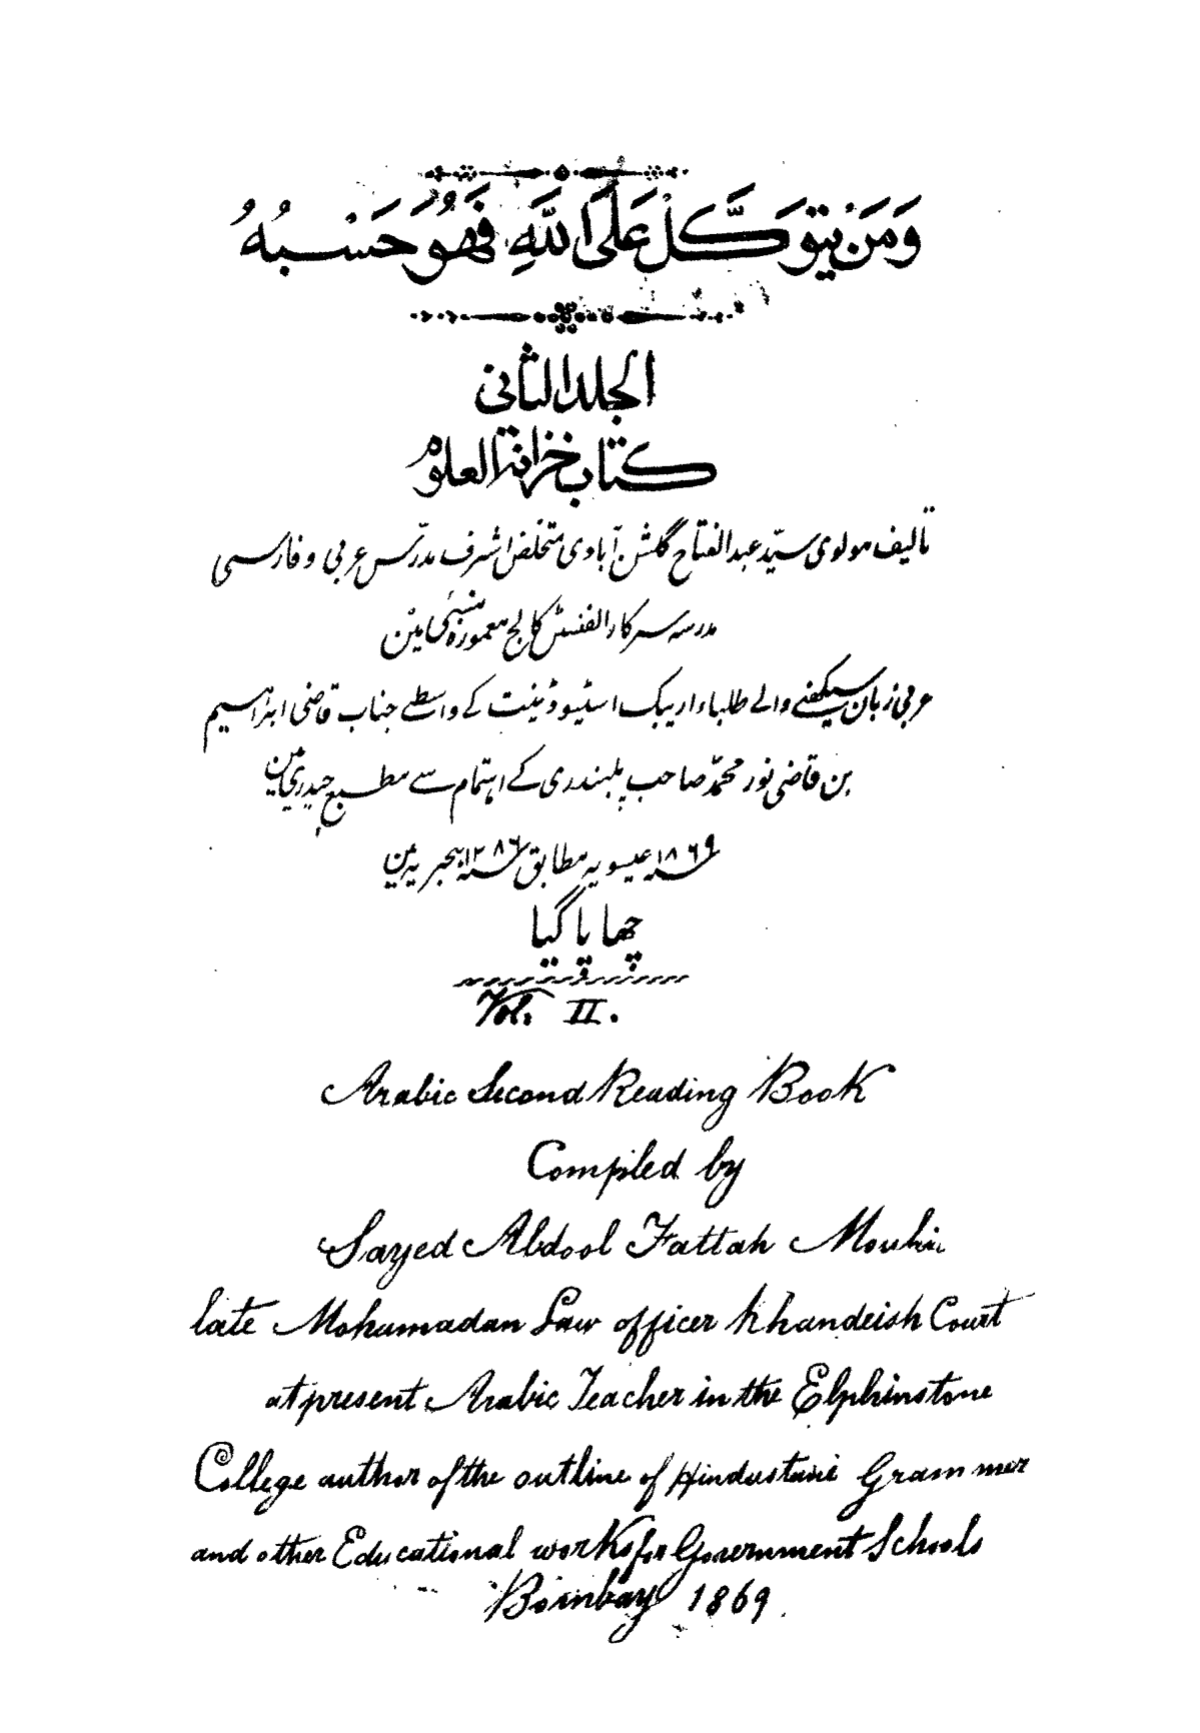 وَمَنْ يَتَوَكَّلْ عَلَى اللَّهِ فَهُوَ حَسْبُهُ
الجلد الثانی
کتاب خزانة العلوم
تالیف مولوی سیّد عبد الفتاح گلشن آبادی متخلص اشرف مدرّس عربی و فارسی
مدرسہ سرکار الفنسٹن کالج معمورۂ بمبئی مین
عربی زبان سیکھنے والے طلباء اریبک اسٹیوڈینٹ کے واسطے جناب قاضی ابراہیم
بن قاضی نور محمّد صاحب پلبندری کے اہتمام سے مطبع حیدری مین
سنہ ۱۸۶۹ عیسویہ مطابق سنہ ۱۲۸۶ ہجریہ مین
چھاپا گیا
Vol. II.
Arabic Second Reading Book
Compiled by
Sayed Abdool Fattah
late Mohamadan Law officer Khandeish Court
at present Arabic Teacher in the Elphinstone
College author of the outline of Hindustani Grammer
and other Educational works for Government Schools
Bombay 1869.